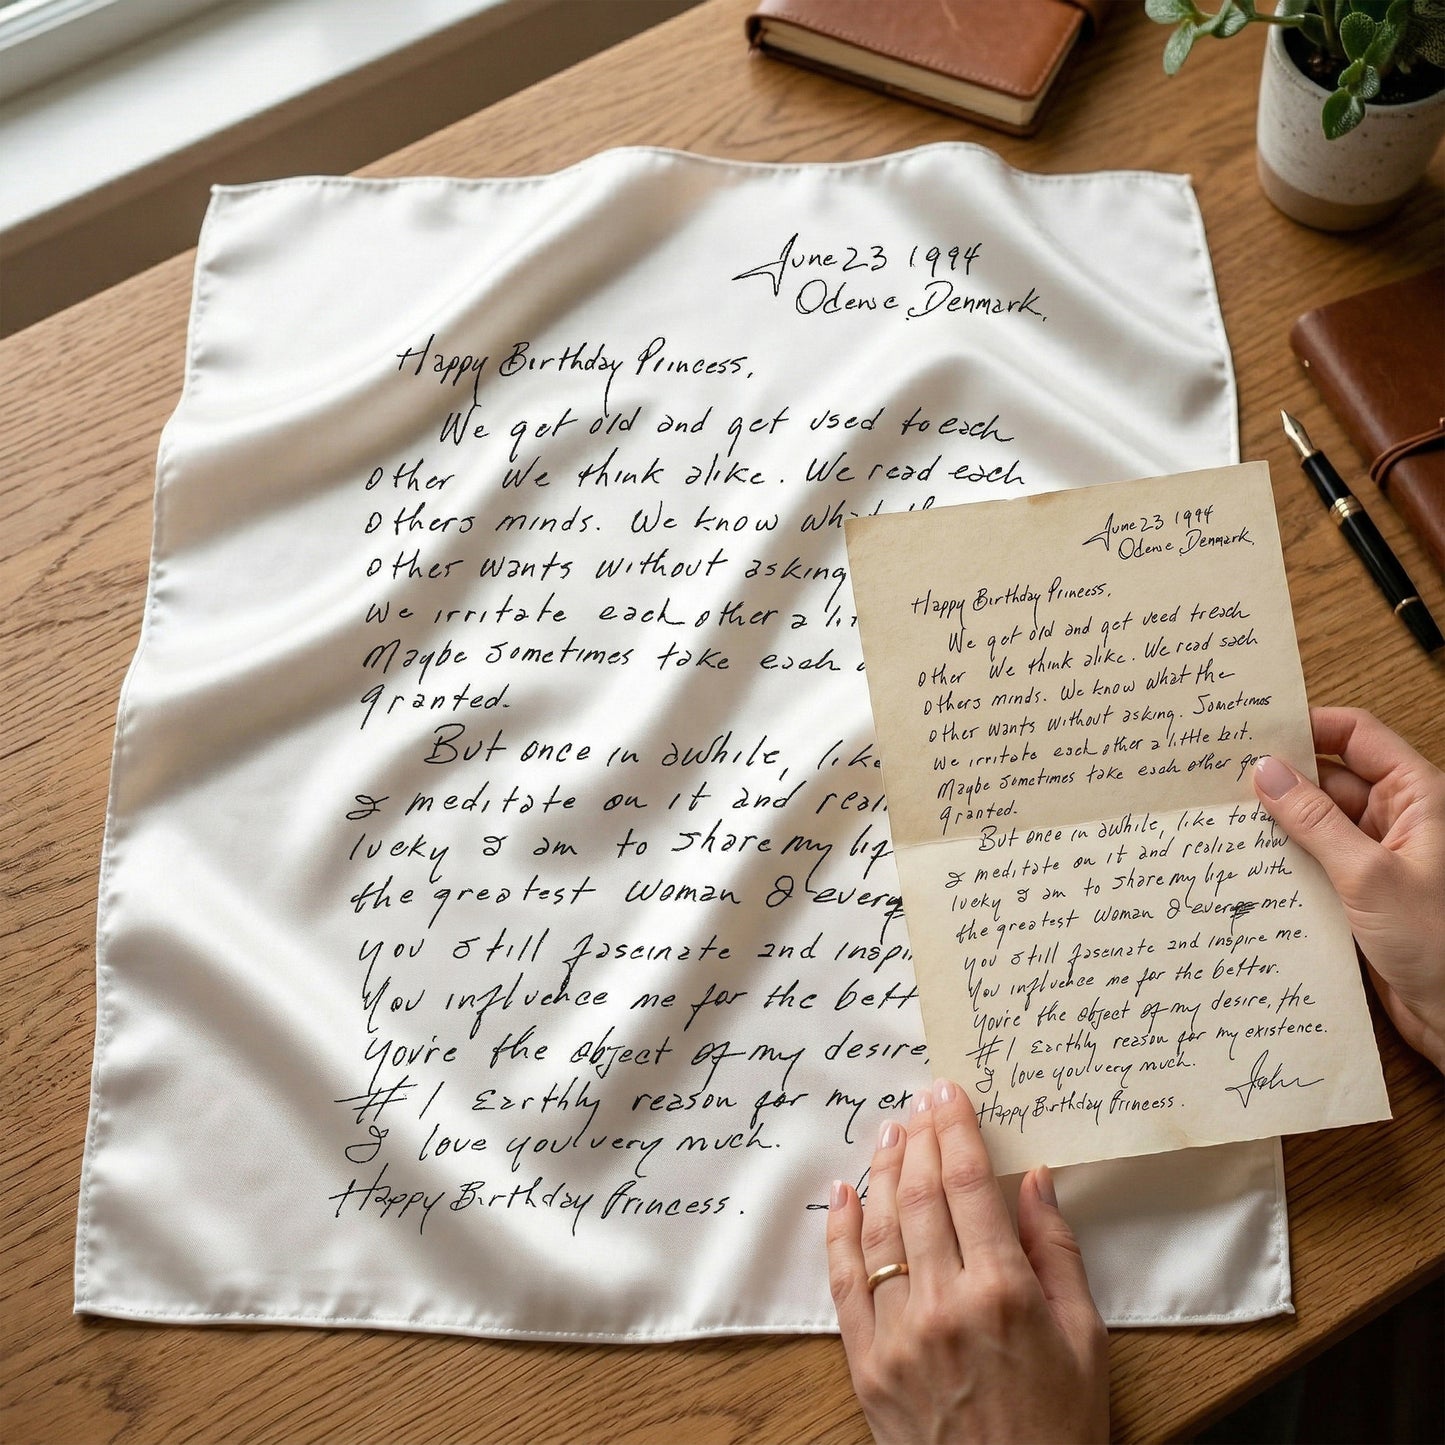 June 23 1994
Odense, Denmark.
Happy Birthday Princess,
We get old and get used to each
other We think alike. We read each
others minds. We know what the
other wants without asking
We irritate each other a li
Maybe sometimes take each
granted.
But once in awhile, like
I meditate on it and real
lucky I am to share my life
the greatest woman I ever
You still fascinate and inspi
You influence me for the bett
You're the object of my desire,
#1 Earthly reason for my ex
I love you very much.
Happy Birthday Princess.
June 23 1994
Odense Denmark.
Happy Birthday Princess,
We get old and get used to each
other We think alike. We read each
others minds. We know what the
other wants without asking. Sometimes
We irritate each other a little bit.
Maybe sometimes take each other for
granted.
But once in awhile, like today
I meditate on it and realize how
lucky I am to share my life with
the greatest woman I ever met.
You still fascinate and inspire me.
You influence me for the better.
You're the object of my desire, the
#1 Earthly reason for my existence.
I love you very much.
Happy Birthday Princess.
John